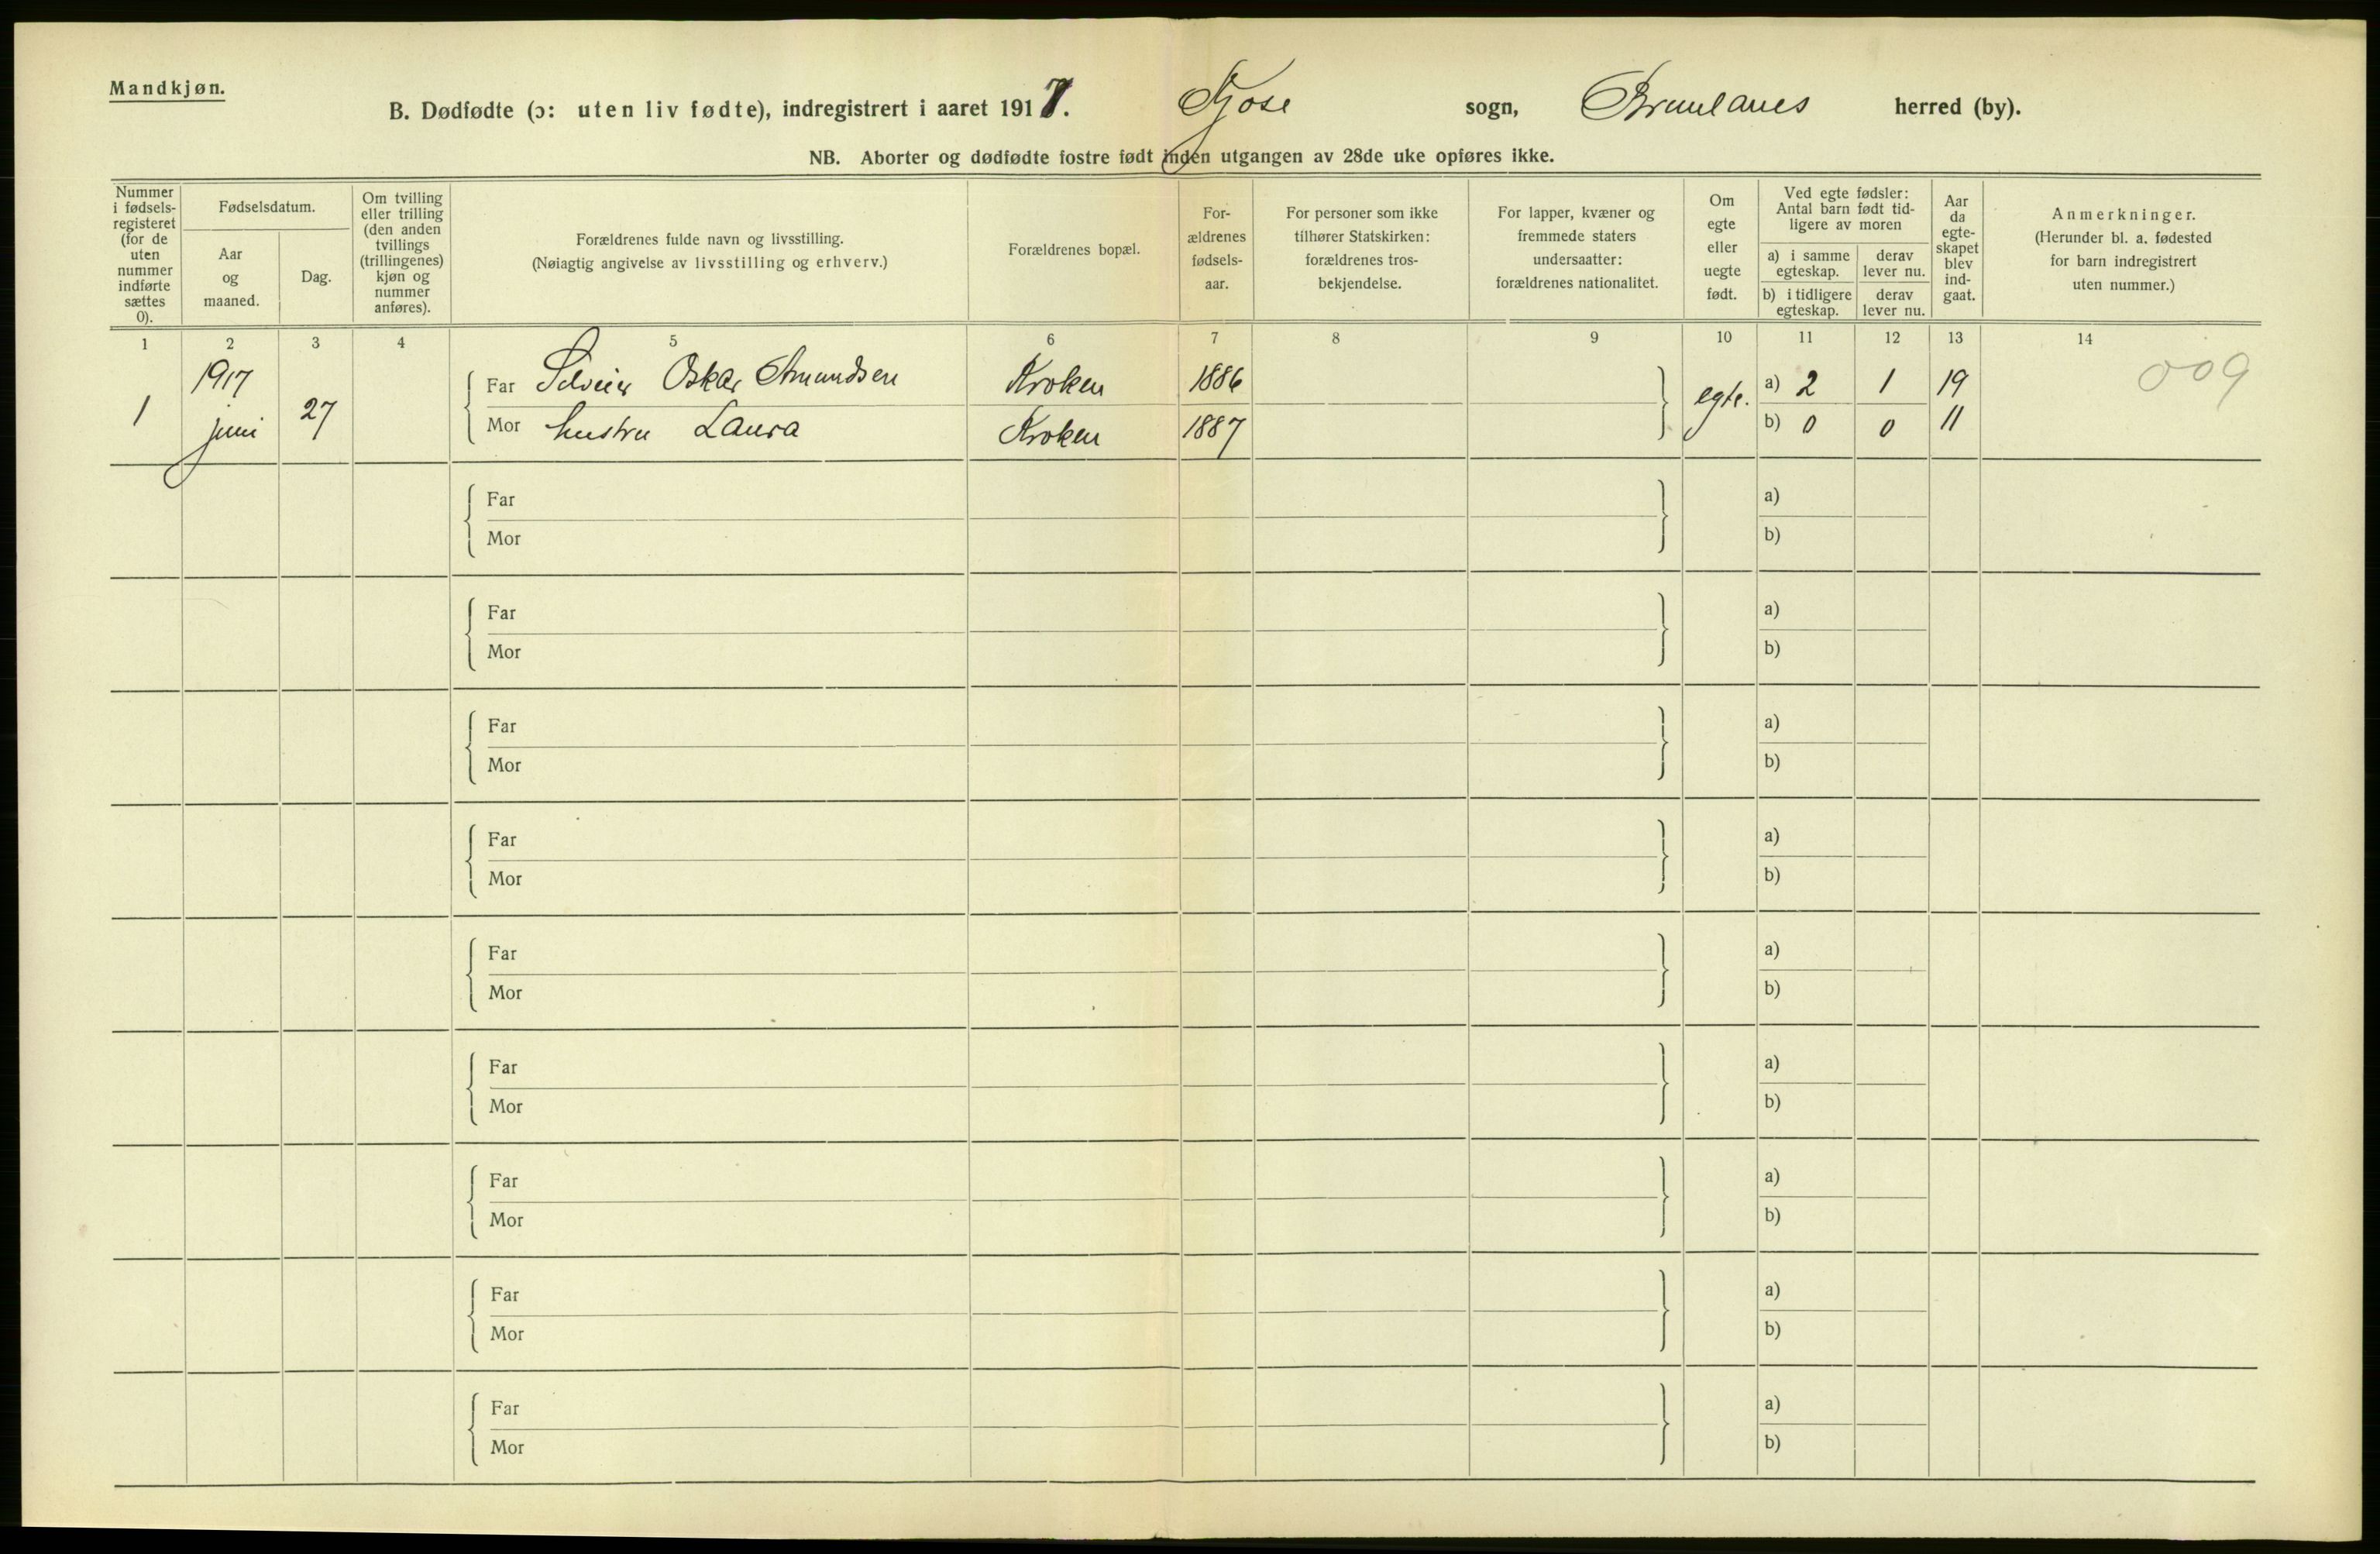 Mandkjøn.
B. Dødfødte (ɔ: uten liv fødte), indregistrert i aaret 1917. Kjose sogn, Brunlanes herred (by).
NB. Aborter og dødfødte fostre født inden utgangen av 28de uke opføres ikke.
Nummer i fødsels-registeret (for de uten nummer indførte sættes 0).
Fødselsdatum.
Aar og maaned.
Dag.
Om tvilling eller trilling (den anden tvillings (trillingenes) kjøn og nummer anføres).
Forældrenes fulde navn og livsstilling.
(Nøiagtig angivelse av livsstilling og erhverv.)
Forældrenes bopæl.
For-ældrenes fødsels-aar.
For personer som ikke tilhører Statskirken: forældrenes tros-bekjendelse.
For lapper, kvæner og fremmede staters undersaatter: forældrenes nationalitet.
Om egte eller uegte født.
Ved egte fødsler: Antal barn født tid-ligere av moren
a) i samme egteskap.
derav lever nu.
b) i tidligere egteskap.
derav lever nu.
Aar da egte-skapet blev ind-gaat.
Anmerkninger.
(Herunder bl. a. fødested for barn indregistrert uten nummer.)
1 2 3 4 5 6 7 8 9 10 11 12 13 14
1 1917 juni 27 Far Oskar Amundsen Kroken 1886 egte. a) 2 1 19 009
Mor hustru Laura Kroken 1887 b) 0 0 11
Far a)
Mor b)
Far a)
Mor b)
Far a)
Mor b)
Far a)
Mor b)
Far a)
Mor b)
Far a)
Mor b)
Far a)
Mor b)
Far a)
Mor b)
Far a)
Mor b)